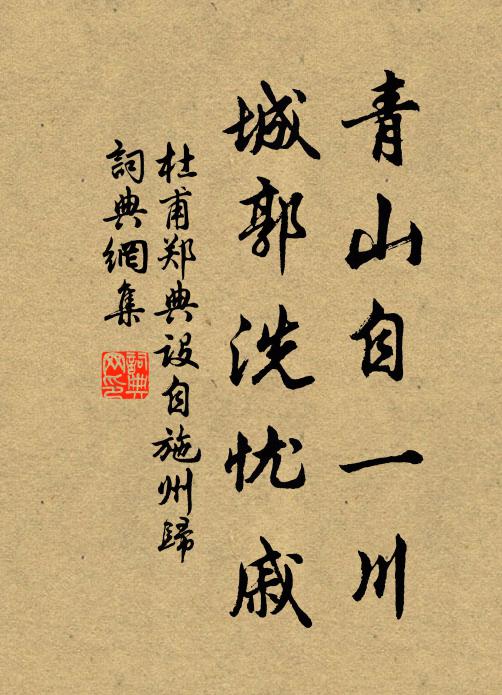 青山自一川
城郭洗忧戚
杜甫郑典设自施州歸
詞典網集
詞典網印